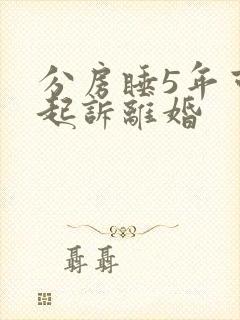 分房睡5年可
起訴離婚
聶聶